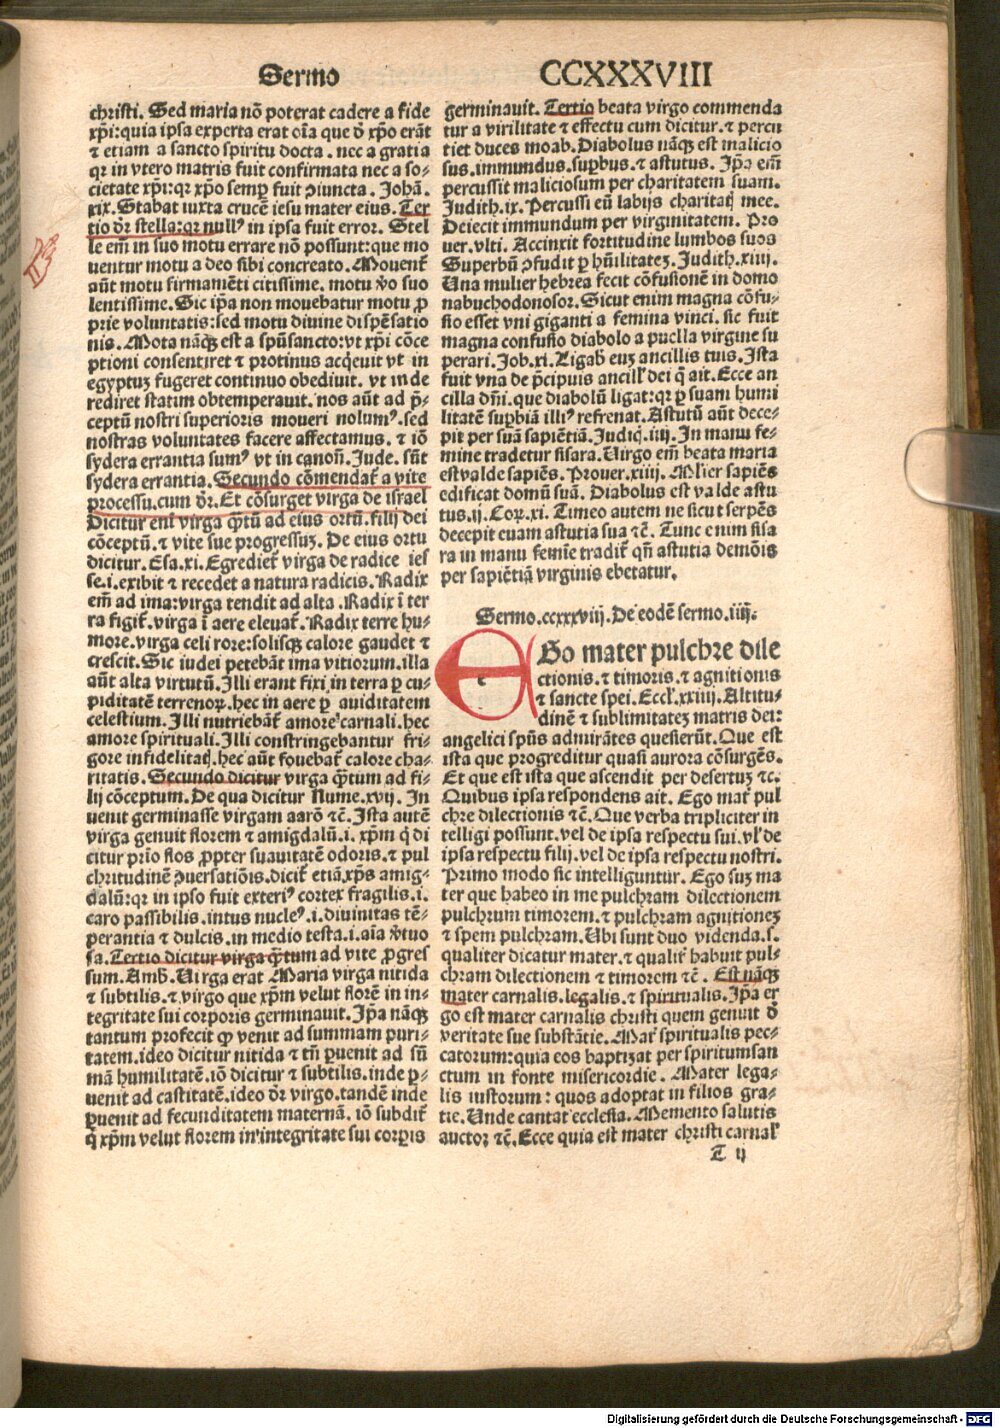 Sermo CCXXXVIII
christi. Sed maria nō poterat cadere a fide
xp̄i:quia ipsa experta erat oīa que d̓ xp̄o erāt
⁊ etiam a sancto spiritu docta. nec a gratia
qr in vtero matris fuit confirmata nec a so⸗
cietate xp̄i:qr xp̄o semꝑ fuit ꝯiuncta. Johā.
xix. Stabat iuxta crucē iesu mater eius. Ter
tio dr̄ stella:qr nullꝰ in ipsa fuit error. Stel
le em̄ in suo motu errare nō possunt:que mo
uentur motu a deo sibi concreato. Mouent̄
aūt motu firmamēti citissime. motu v̓o suo
lentissime. Sic ip̄a non mouebatur motu ꝓ
prie voluntatis:sed motu diuine dispēsatio
nis. Mota nāqꝫ est a spūsancto:vt xp̄i cōce
ptioni consentiret ⁊ protinus acq̇euit vt in
egyptuꝫ fugeret continuo obediuit. vt inde
rediret statim obtemperauit. nos aūt ad p̄⸗
ceptū nostri superioris moueri nolumꝰ. sed
nostras voluntates facere affectamus. ⁊ iō
sydera errantia sumꝰ vt in canoñ. Jude. sūt
sydera errantia. Secundo cōmendat̄ a vite
processu. cum dr̄. Et cōsurget virga de israel
Dicitur eni virga q̄tū ad eius ortū. filij dei
cōceptū. ⁊ vite sue progressuꝫ. De eius ortu
dicitur. Esa. xi. Egrediet̄ virga de radice ies
se. i. exibit ⁊ recedet a natura radicis. Radix
em̄ ad ima:virga tendit ad alta. Radix ī ter
ra figit̄. virga ī aere eleuat̄. Radix terre hu⸗
more. virga celi rore:solisqꝫ calore gaudet ⁊
crescit. Sic iudei petebāt ima vitiorum. illa
aūt alta virtutū. Illi erant fixi in terra ꝑ cu⸗
piditatē terrenoꝝ. hec in aere ꝑ auiditatem
celestium. Illi nutriebāt̄ amore carnali. hec
amore spirituali. Illi constringebantur fri⸗
gore infidelitatꝭ. hec aūt fouebat̄ calore cha⸗
ritatis. Secundo dicitur virga q̄tum ad fi⸗
lij cōceptum. De qua dicitur Nume. xvij. In
uenit germinasse virgam aarō ⁊c̄. Ista autē
virga genuit florem ⁊ amigdalū. i. xp̄m q̇ di
citur prīo flos ꝓpter suauitatē odoris. ⁊ pul
chritudinē ꝯuersatiōis. dicit̄ etiā xp̄s amig⸗
dalū:qr in ipso fuit exteriꝰ cortex fragilis. i.
caro passibilis. intus nucleꝰ. i. diuinitas tē⸗
perantia ⁊ dulcis. in medio testa. i. aīa v̓tuo
sa. Tertio dicitur virga q̄tum ad vite ꝓgres
sum. Amb. Uirga erat Maria virga nitida
⁊ subtilis. ⁊ virgo que xp̄m velut florē in in⸗
tegritate sui corporis germinauit. Ip̄a nāqꝫ
tantum profecit ꝙ venit ad summam puri⸗
tatem. ideo dicitur nitida ⁊ tn̄ ꝑuenit ad sū
mā humilitatē. iō dicitur ⁊ subtilis. inde ꝑ⸗
uenit ad castitatē. ideo dr̄ virgo. tandē inde
ꝑuenit ad fecunditatem maternā. iō subdit̄
q̇ xp̄m velut florem in integritate sui corꝑis
germinauit. Tertio beata virgo commenda
tur a virilitate ⁊ effectu cum dicitur. ⁊ percu
tiet duces moab. Diabolus nāqꝫ est malicio
sus. immundus. suꝑbus. ⁊ astutus. Ip̄a em̄
percussit maliciosum per charitatem suam.
Judith. ix. Percussi eū labijs charitatꝭ mee.
Deiecit immundum per virginitatem. Pro
uer. vlti. Accinxit fortitudine lumbos suos
Superbū ꝯfudit ꝑ hūilitateꝫ. Judith. xiiij.
Una mulier hebrea fecit cōfusionē in domo
nabuchodonosor. Sicut enim magna cōfu⸗
sio esset vni giganti a femina vinci. sic fuit
magna confusio diabolo a puella virgine su
perari. Job. xl. Ligab̓ euꝫ ancillis tuis. Ista
fuit vna de p̄cipuis ancill̓ dei q̄ ait. Ecce an
cilla dn̄i. que diabolū ligat:qr ꝑ suam humi
litatē suꝑbiā illiꝰ refrenat. Astutū aūt dece⸗
pit per suā sapiētiā. Judiq̇. iiij. In manu fe⸗
mine tradetur sisara. Uirgo em̄ beata maria
est valde sapiēs. Prouer. xiiij. Mlier sapiēs
edificat domū suā. Diabolus est valde astu
tus. ij. Coꝝ. xi. Timeo autem ne sicut serpēs
decepit euam astutia sua ⁊c̄. Tunc enim sisa
ra in manu femīe tradit̄ qn̄ astutia demōis
per sapiētiā virginis ebetatur.
Sermo. ccxxxviij. De eodē sermo. iiij.
EGo mater pulchre dile
ctionis. ⁊ timoris. ⁊ agnitionis
⁊ sancte spei. Eccl̓. xxiiij. Altitu⸗
dinē ⁊ sublimitateꝫ matris dei:
angelici spūs admirātes quesierūt. Que est
ista que progreditur quasi aurora cōsurgēs.
Et que est ista que ascendit per desertuꝫ ⁊c.
Quibus ipsa respondens ait. Ego mat̄ pul
chre dilectionis ⁊c̄. Que verba tripliciter in
telligi possunt. vel de ipsa respectu sui. vl̓ de
ipsa respectu filij. vel de ipsa respectu nostri.
Primo modo sic intelliguntur. Ego suꝫ ma
ter que habeo in me pulchram dilectionem
pulchrum timorem. ⁊ pulchram agnitioneꝫ
⁊ spem pulchram. Ubi sunt duo videnda. s.
qualiter dicatur mater. ⁊ qualit̄ habuit pul⸗
chram dilectionem ⁊ timorem ⁊c̄. Est nāqꝫ
mater carnalis. legalis. ⁊ spiritualis. Ip̄a er
go est mater carnalis christi quem genuit d̓
veritate sue substātie. Mat̄ spiritualis pec⸗
catorum:quia eos baptizat per spiritumsan
ctum in fonte misericordie. Mater lega⸗
lis iustorum: quos adoptat in filios gra⸗
tie. Unde cantat ecclesia. Memento salutis
auctor ⁊c̄. Ecce quia est mater christi carnal̓
T ij
Digitalisierung gefördert durch die Deutsche Forschungsgemeinschaft - DFG